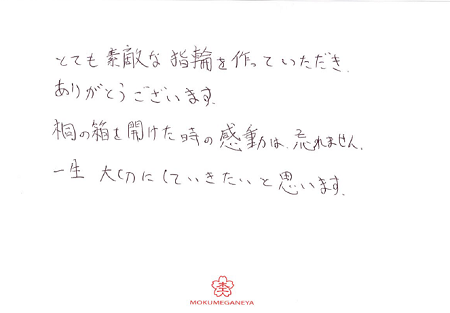 とても素敵な指輪を作っていただき、
ありがとうございます。
桐の箱を開けた時の感動は、忘れません。
一生 大切にしていきたいと思います。
MOKUMEGANEYA